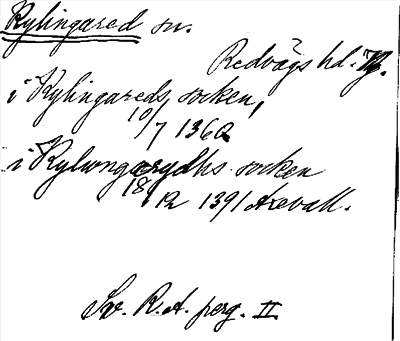 Kylingared sn.
Redvägs hd. Vg.
i Kylingareds socken,
10/7 1362
i Kylwngarydhs socken
18/12 1391 Axevall.
Sv. R.A. perg. II.